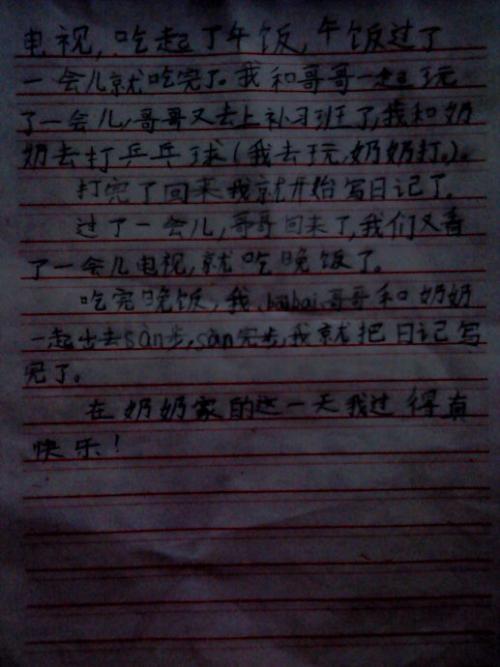 电视,吃起了午饭,午饭过了
一会儿就吃完了。我和哥哥一起玩
了一会儿,哥哥又去上补习班了,我和奶
奶去打乒乓球(我去玩,奶奶打。)。
打完了回来我就开始写日记了。
过了一会儿,哥哥回来了,我们又看
了一会儿电视,就吃晚饭了。
吃完晚饭,我、哥哥和奶奶
一起出去sàn步,sàn完步,我就把日记写
完了。
在奶奶家的这一天我过得真
快乐!